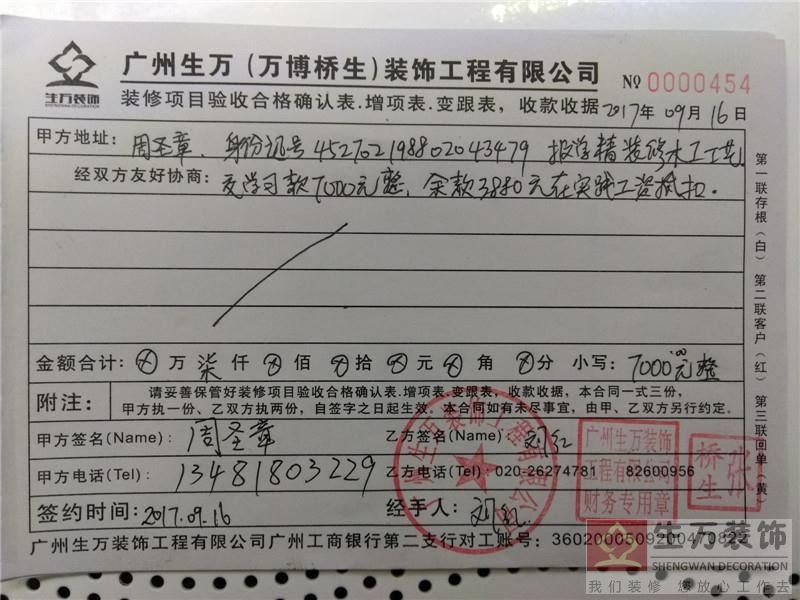 生万装饰
SHENGWAN DECORATION
广州生万（万博桥生）装饰工程有限公司 NO 0000454
装修项目验收合格确认表.增项表.变跟表，收款收据 2017年 09月 16日
甲方地址： 周圣章、身份证号 452702198802043479 报学精装修水工工艺
经双方友好协商： 交学习款7000元整，余款3880元在实践工资抵扣.
金额合计： ⊗ 万 柒 仟 ⊗ 佰 ⊗ 拾 ⊗ 元 ⊗ 角 ⊗ 分 小写： 7000.00元整
附注： 请妥善保管好装修项目验收合格确认表.增项表.变跟表，收款收据，本合同一式三份，
甲方执一份、乙双方执两份，自签字之日起生效。本合同如有未尽事宜，由甲、乙双方另行约定。
甲方签名(Name)： 周圣章 乙方签名(Name)： 刘红
甲方电话(Tel)： 13481803229 乙方电话(Tel)：020-26274781 82600956
签约时间： 2017.09.16 经手人： 刘红
广州生万装饰工程有限公司广州工商银行第二支行对工账号：3602000509200470822
第一联存根（白） 第二联客户（红） 第三联回单（黄）
广州生万装饰工程有限公司
广州生万装饰
工程有限公司
财务专用章
张桥生
生万装饰
SHENGWAN DECORATION
我们装修 您放心工作去